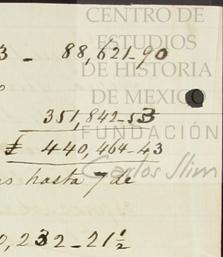 CENTRO DE
ESTUDIOS
DE HISTORIA
DE MEXICO
FUNDACIÓN
Carlos Slim
3 - 88,621-90
351,842-53
£ 440,464-43
hasta 7 de
0,232-21½